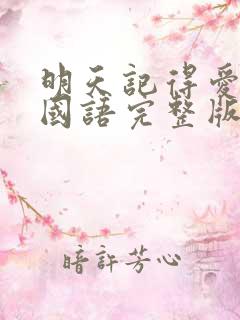 明天記得愛
國語完整版
暗許芳心